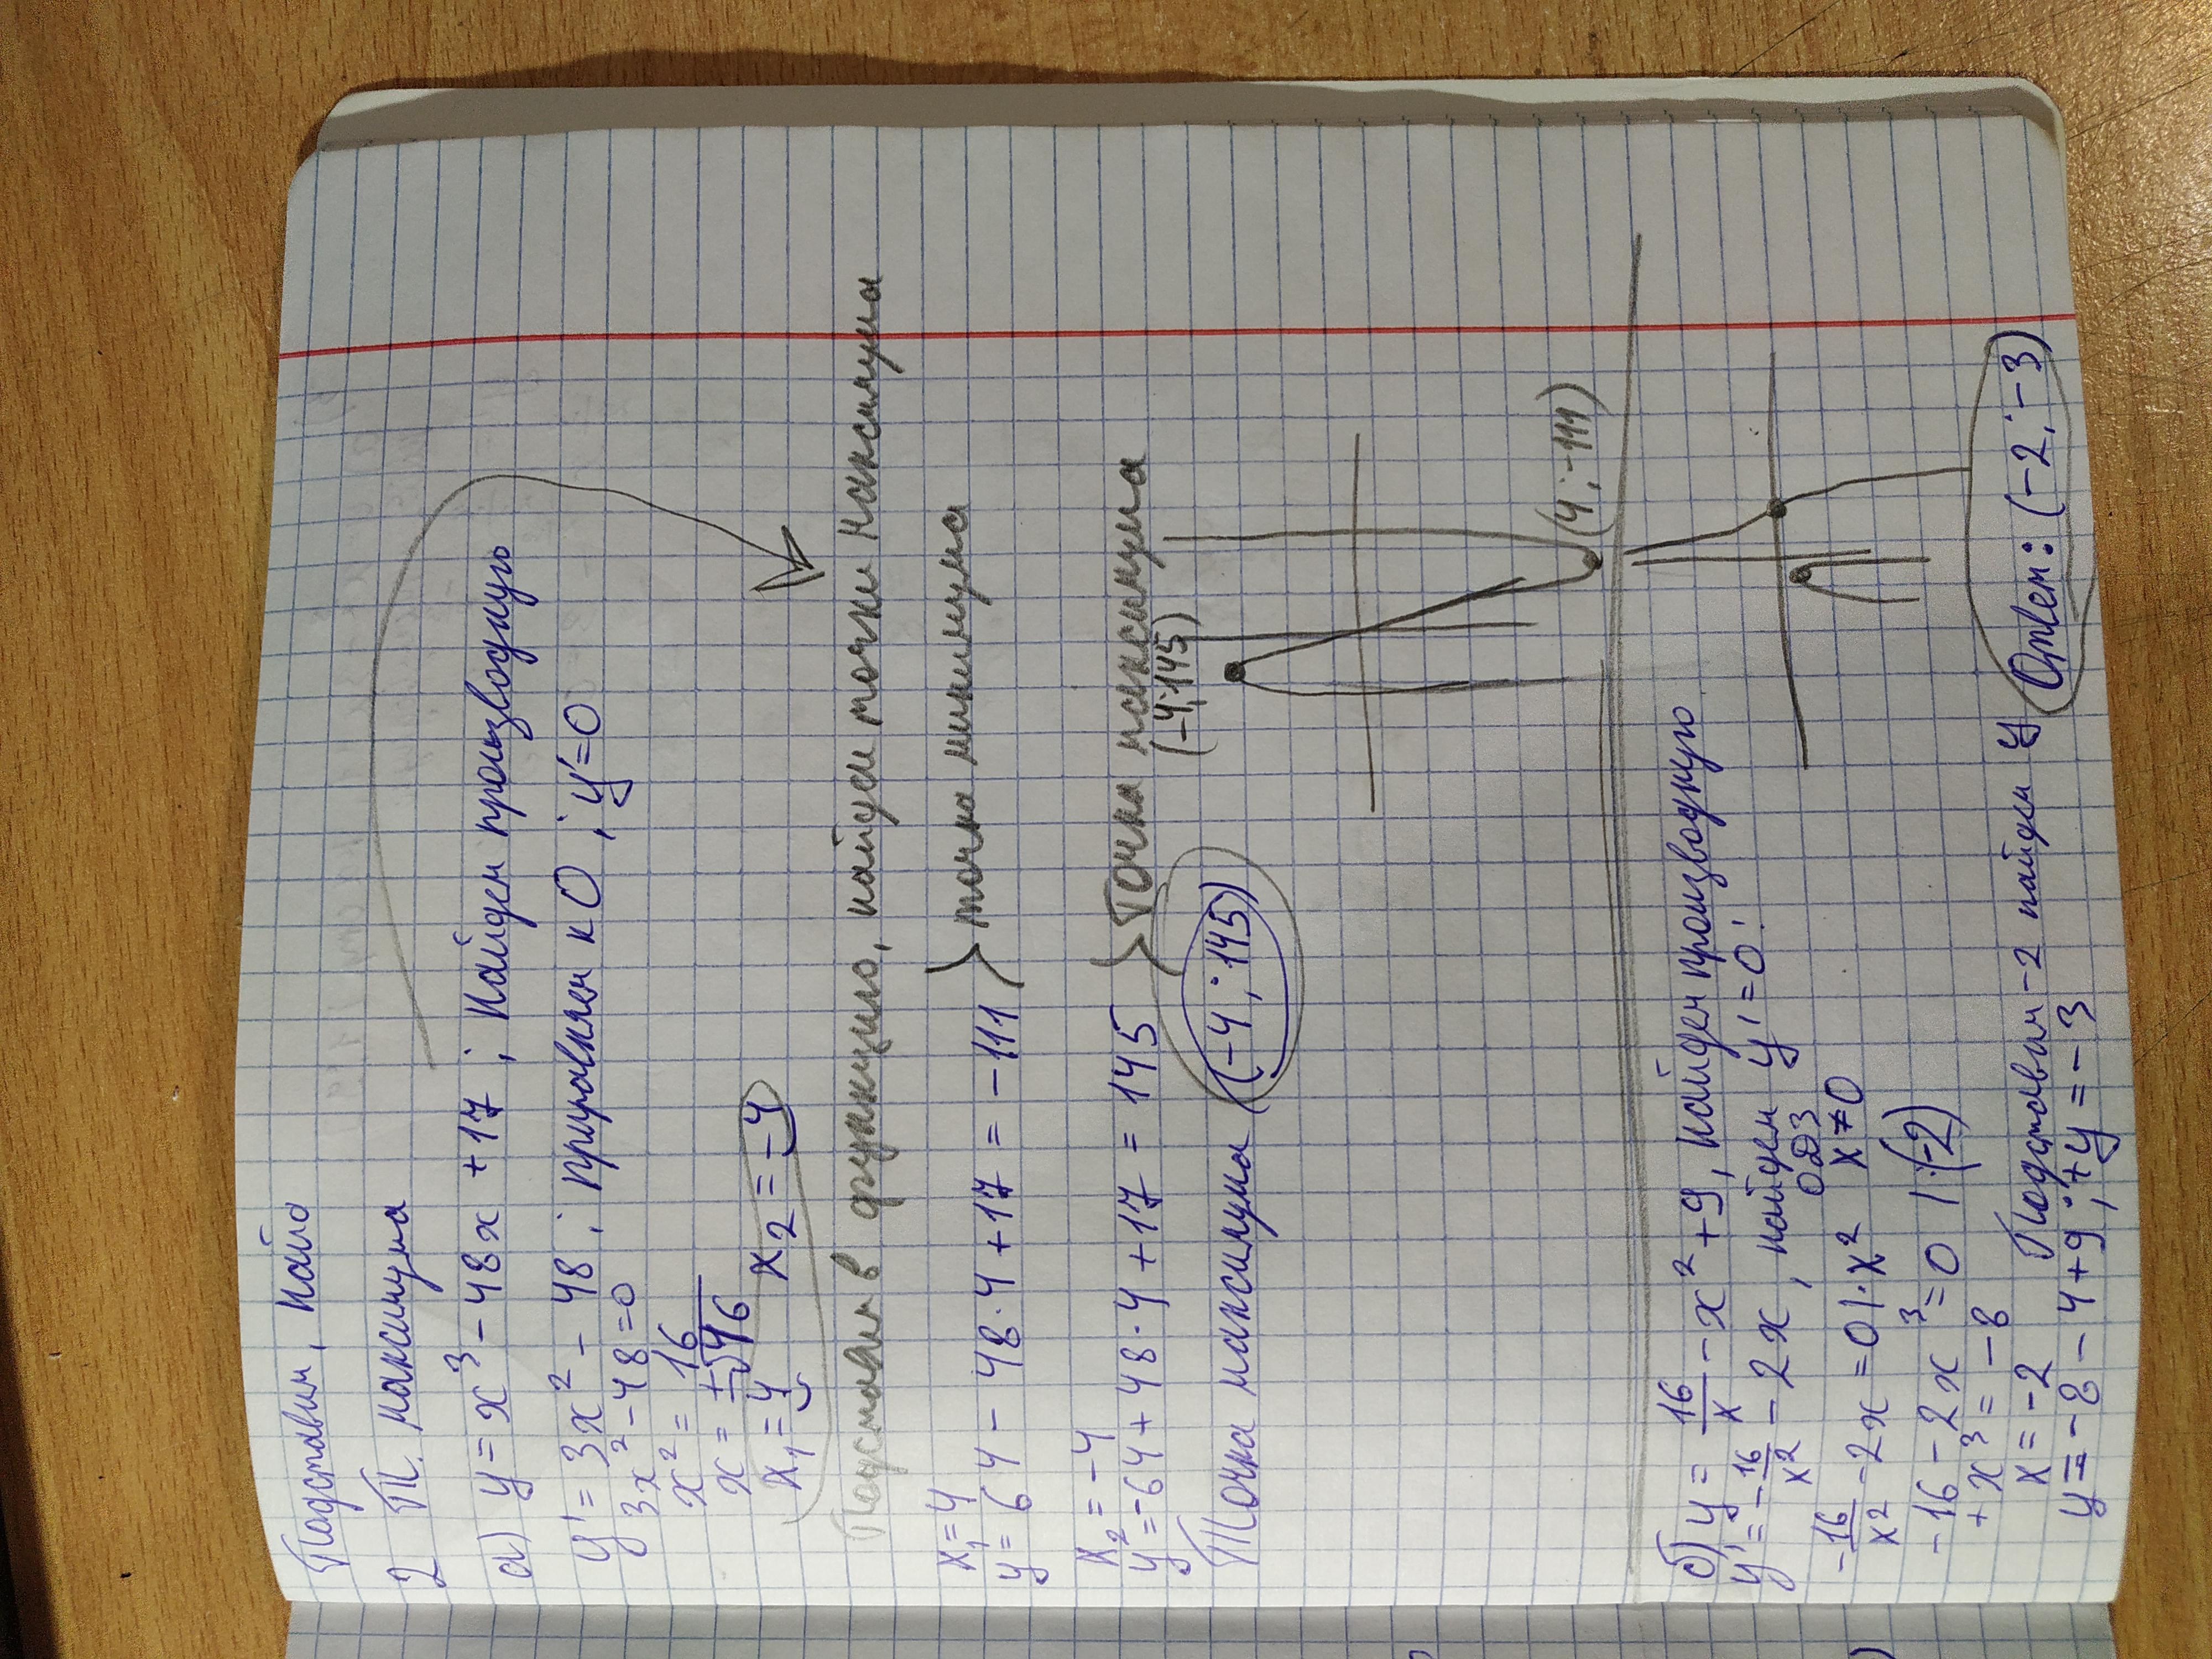 Подставим, найд
2 Т. максимума
а) y = x³ - 48x + 17 ; Найдем производную
y' = 3x² - 48 ; приравняем к 0 ; y'=0
3x² - 48 = 0
x² = 16
x = ±√16
x₁ = 4 x₂ = -4
Подставим в функцию, найдем точки максимума
x₁ = 4
y = 64 - 48·4 + 17 = -111 } точка минимума
x₂ = -4
y = -64 + 48·4 + 17 = 145 } Точка максимума
(-4; 145)
Точка максимума (-4; 145)
(4; -111)
б) y = 16/x - x² + 9, найдем производную
y' = -16/x² - 2x, найдем y' = 0
ОДЗ
-16/x² - 2x = 0 | · x² x ≠ 0
-16 - 2x³ = 0 | :(-2)
+ x³ = -8
x = -2 Подставим -2 найдем y
y = -8 - 4 + 9 ; + y = -3
Ответ: (-2; -3)